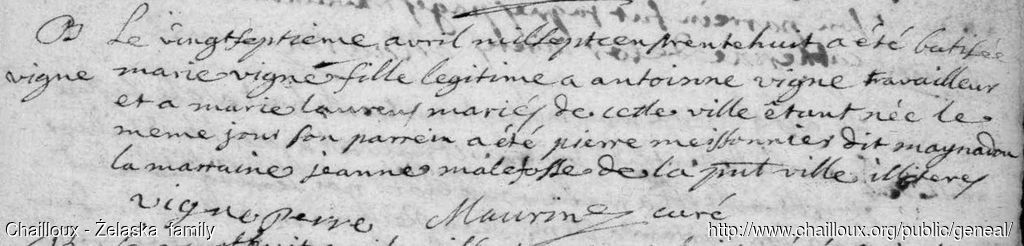 B Le vingtseptieme avril milseptcenstrentehuit a été batisée
vigne marie vigne fille legitime a antoinne vigne travailleur
et a marie laurens mariés de cette ville êtant née le
meme jour son parrein a été pierre meissonnier dit magnadou
la marraine jeanne malefosse de la pnt ville illiteres
vigne perre Maurin curé
Chailloux - Żelaska family
http://www.chailloux.org/public/geneal/